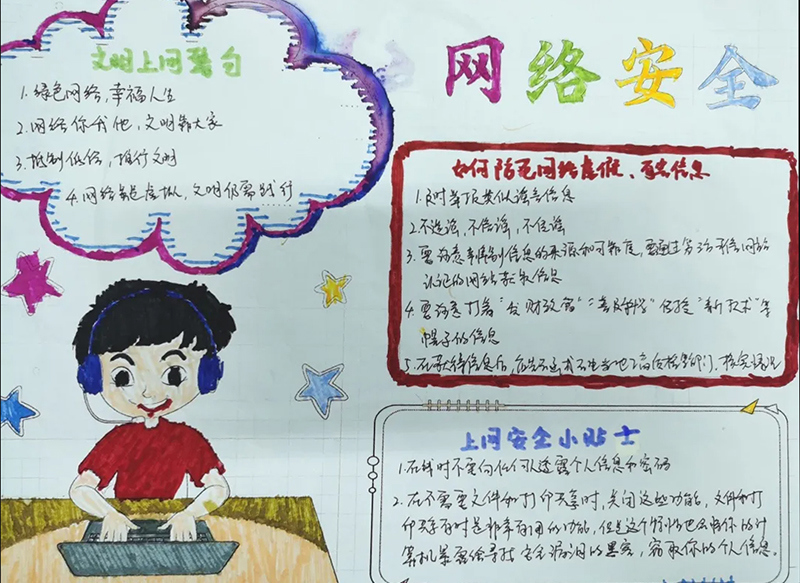 网络安全
文明上网警句
1.绿色网络,幸福人生
2.网络你我他,文明靠大家
3.抵制低俗,推行文明
4.网络虽是虚拟,文明仍需践行
如何防范网络虚假、有害信息
1.及时举报类似谣言信息
2.不造谣,不信谣,不传谣
3.要注意辨别信息的来源和可靠度,要通过第三方可信网站
认证的网站获取信息
4.要注意打着“发财致富”“普及科学”传授“新技术”等
幌子的信息
5.在获得信息后,应先去 核实情况
上网安全小贴士
1.在线时不要向任何人透露个人信息和密码
2.在不需要文件和打印共享时,关闭这些功能,文件和打
印共享有时是非常有用的功能,但是这个特性也会将你的计
算机暴露给寻找安全漏洞的黑客,窃取你的个人信息。